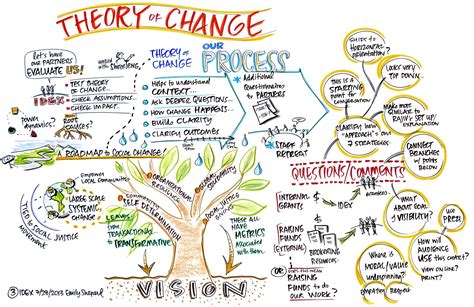 THEORY of CHANGE
let's have
our PARTNERS
EVALUATE US!
IDEX
TEST THEORY
OF CHANGE
CHECK ASSUMPTIONS...
CHECK IMPACT.
Power
dynamics?
ROOT
CAUSES?
A ROADMAP to SOCIAL CHANGE!
worked with
THEORY
OF
CHANGE
OUR
PROCESS
Helps to understand
CONTEXT...
ASK DEEPER QUESTIONS...
HOW CHANGE HAPPENS...
BUILDS CLARITY
CLARIFY OUTCOMES
Additional
Questionnaires
to PARTNERS
STAFF
RETREAT
SHIFT to
HORIZONTAL
ORIENTATION?
LOOKS VERY
TOP DOWN.
THIS IS A
STARTING
POINT for
CONVERSATION
MAKE MORE
SIMILAR to
RAJIV'S SET UP/
EXPLANATION
CLARIFY HOW
"APPROACH" + OUR
7 STRATEGIES
CONNECT
BRANCHES
w/ POINTS
BELOW
EMPOWER
LOCAL COMMUNITIES
LARGE SCALE
SYSTEMIC
CHANGE
TIED to SOCIAL JUSTICE
MOVEMENT
COMMUNITY
SELF DETERMINATION
ORGANIZATIONAL
RESILIENCE
LEAVES
FROM
TRANSACTIONAL
to
TRANSFORMATIVE
THESE ALL
HAVE
METRICS
ASSOCIATED
with them.
VISION
QUESTIONS/COMMENTS
INTERNAL
GRANTS
RAISING
FUNDS
(EXTERNAL)
IDEX
OR:
DOES THIS MEAN
RAISING
FUNDS to DO
OUR WORK?
WHAT ABOUT
GOAL of
VISIBILITY?
USE
PREZI
HOW WILL
AUDIENCE
USE
this on
screen?
WHERE is
MORAL/VALUE
underpinning?
3 IDEX 7/29/2013 Emily Shepard